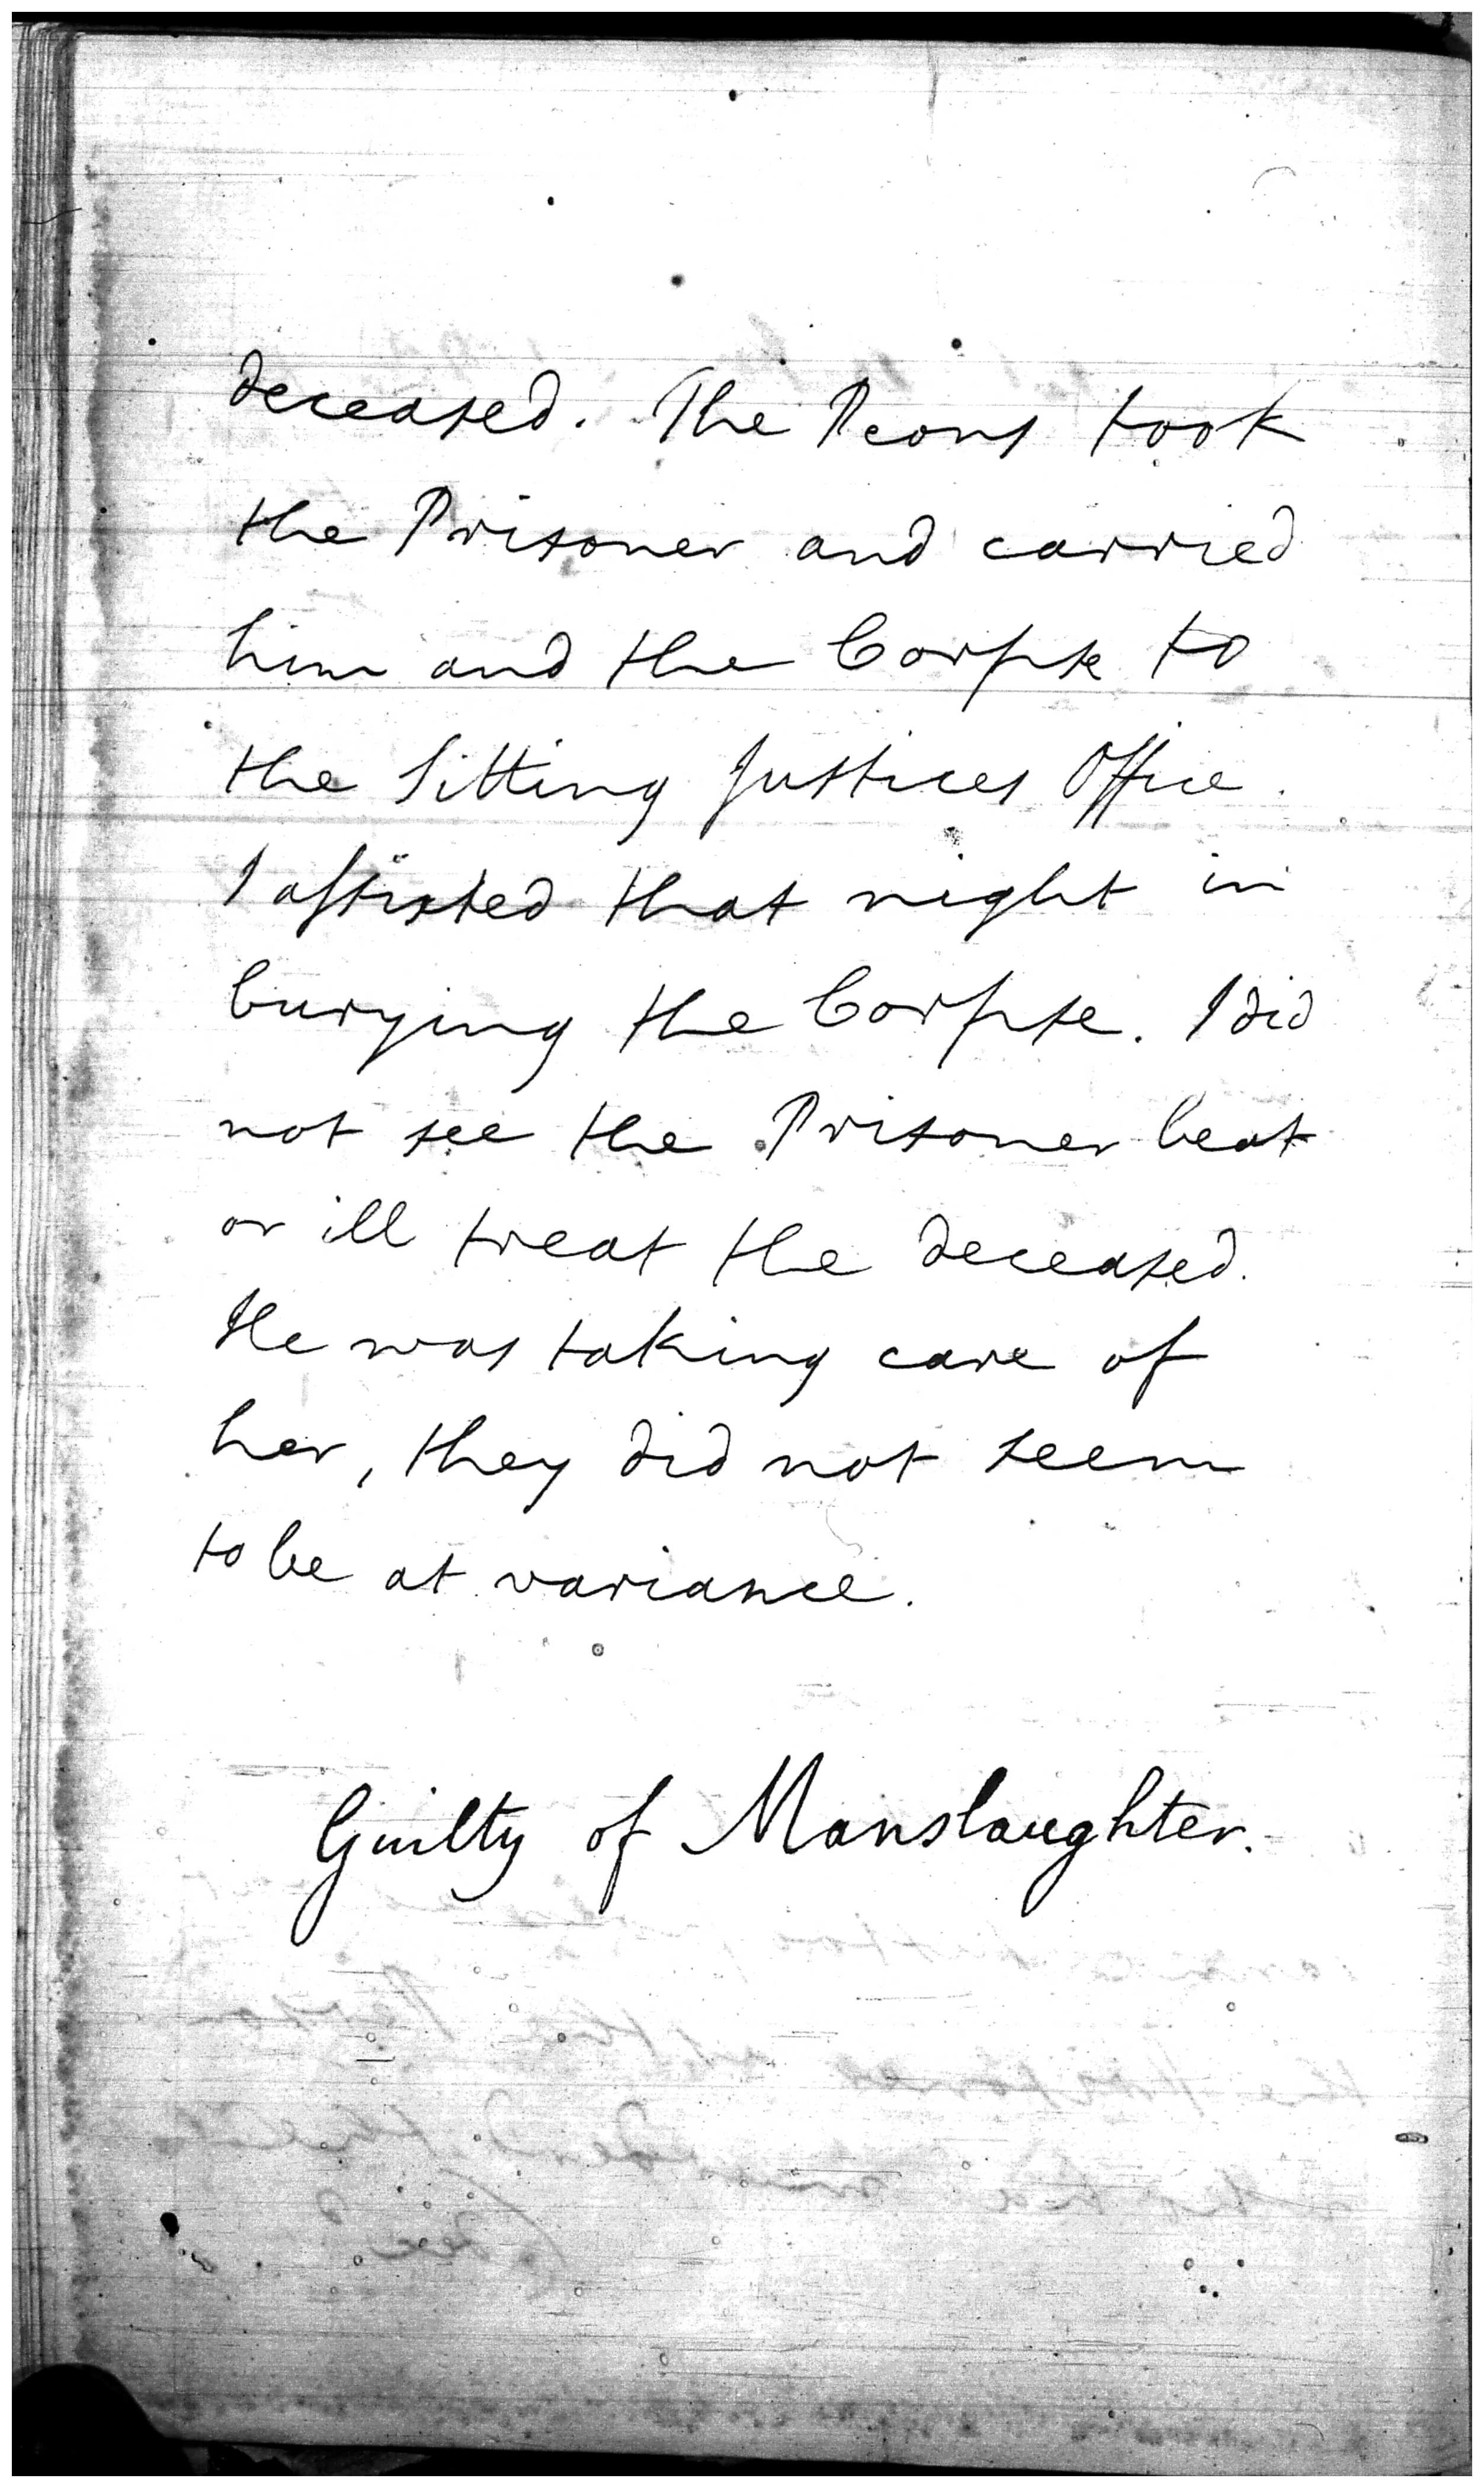 deceased. The Peons took
the Prisoner and carried
him and the Corpse to
the Sitting Justices Office.
I assisted that night in
burying the Corpse. I did
not see the Prisoner beat
or ill treat the deceased.
He was taking care of
her, they did not seem
to be at variance.
Guilty of Manslaughter.